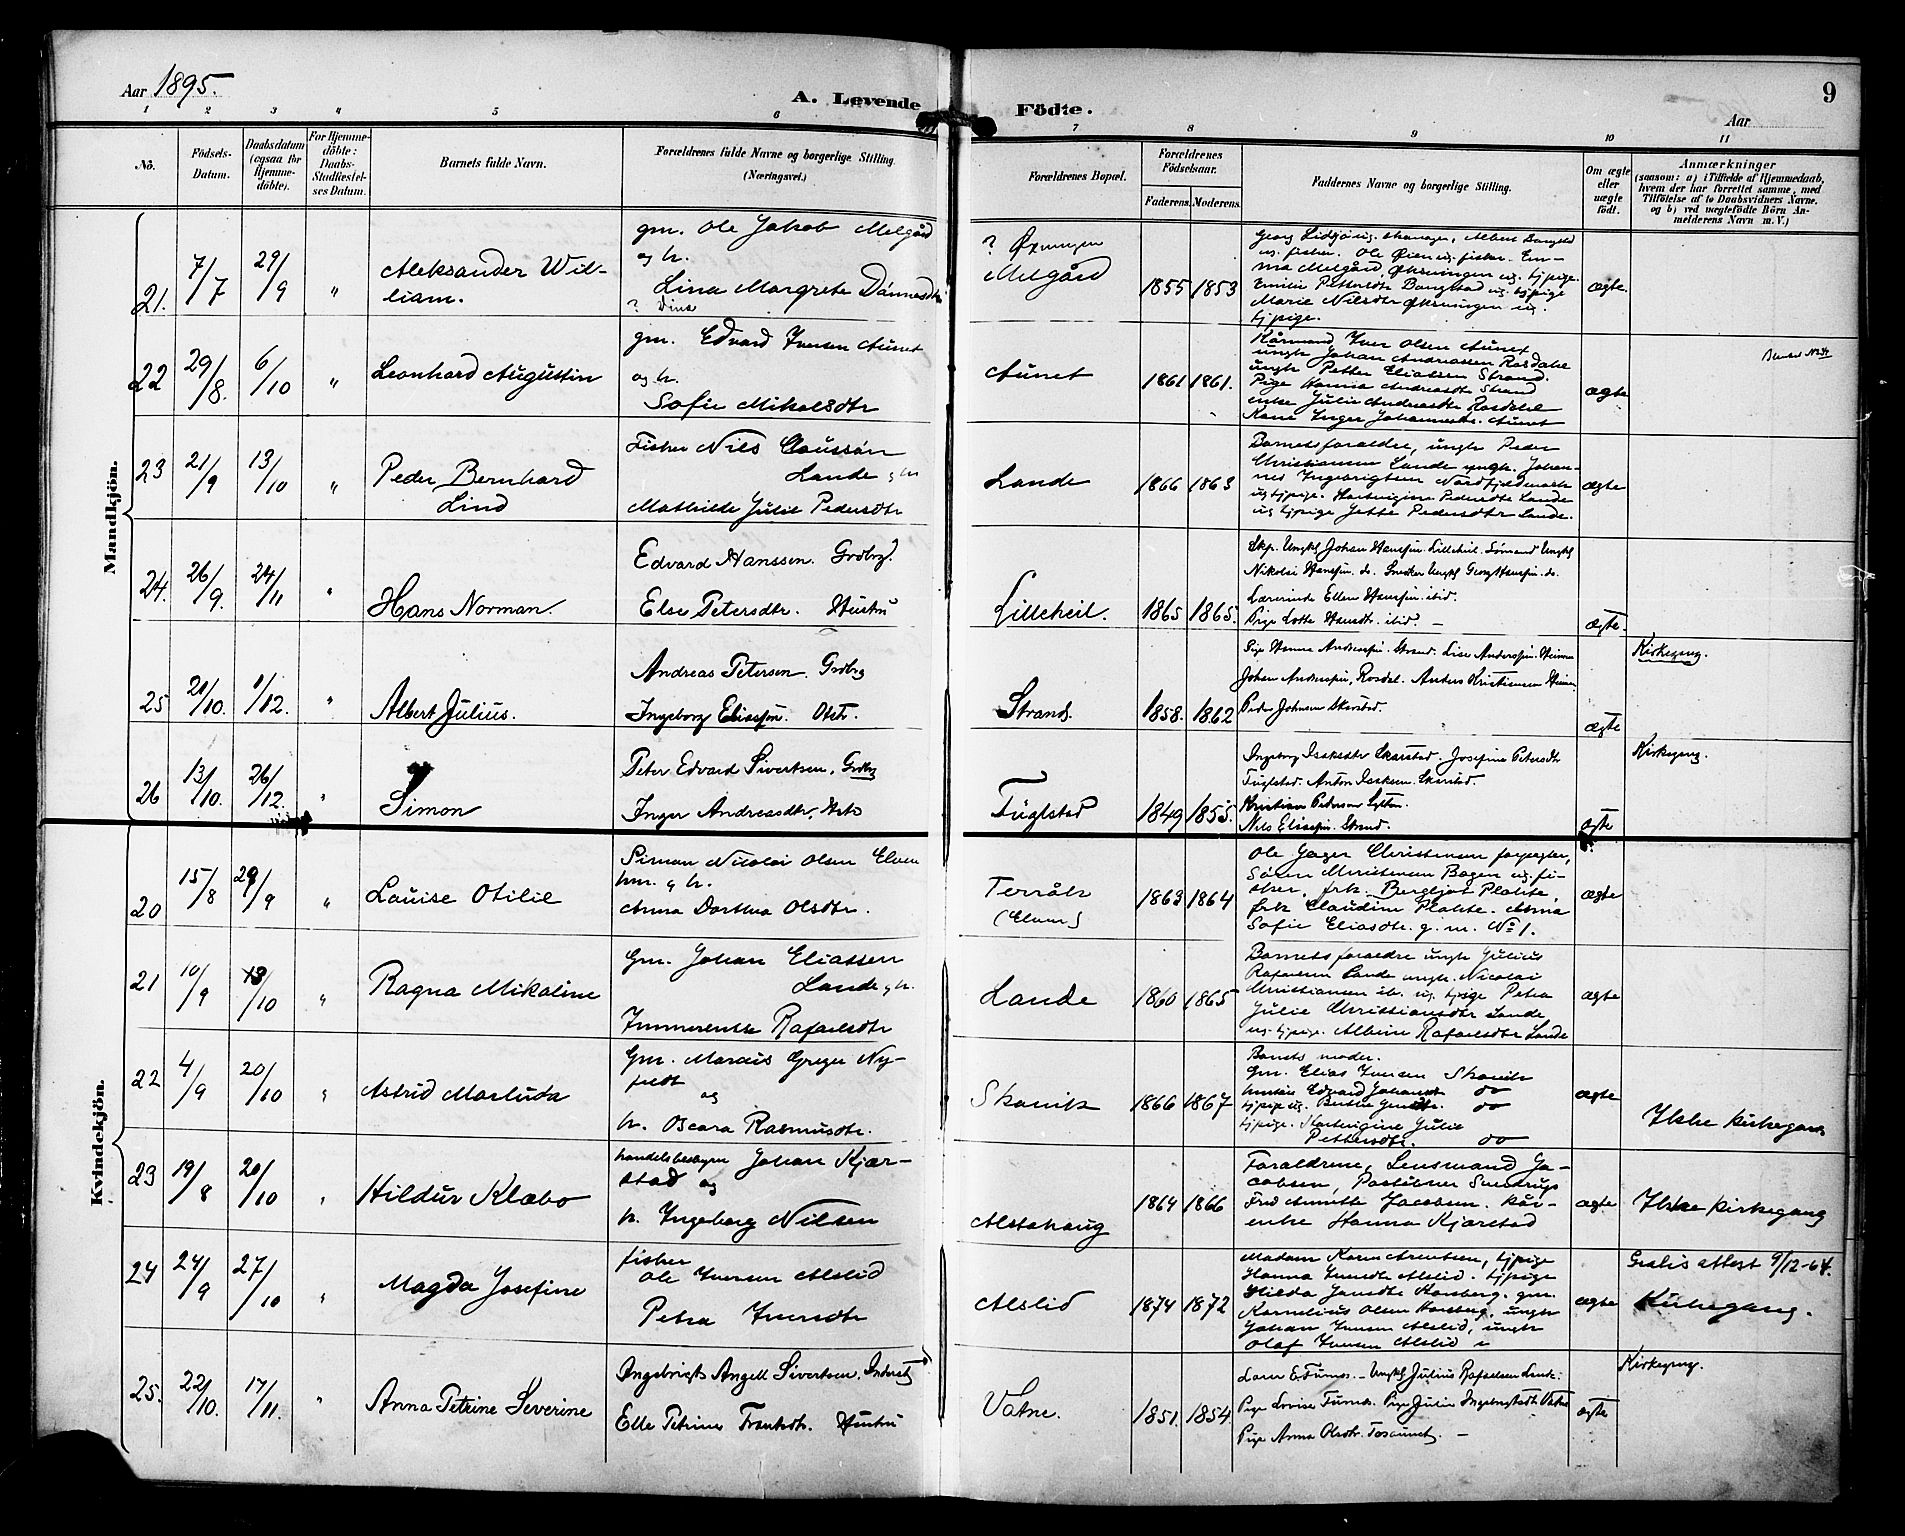 Aar 1895.
A. Levende Födte.
9
Aar
1 2 3 4 5 6 7 8 9 10 11
No.
Födsels-Datum.
Daabsdatum (ogsaa for Hjemmedöbte).
For Hjemmedöbte: Daabs-Stadfæstelses Datum.
Barnets fulde Navn.
Forældrenes fulde Navne og borgerlige Stilling. (Næringsvei.)
Forældrenes Bopæl.
Forældrenes Födselsaar.
Faderens. Moderens.
Faddernes Navne og borgerlige Stilling.
Om ægte eller uægte födt.
Anmærkninger
(saasom: a) i Tilfælde af Hjemmedaab, hvem der har forrettet samme, med Tilföielse af to Daabsvidners Navne, og b) ved uægtefödte Börn Anmelderens Navn m. V.)
Mandkjön.
21. 7/7 29/9 " Aleksander William.
gm. Ole Jakob Melgård
og h.
Lina Margrete Dånnesdtr
? Dina
? Øxningen
Melgård
1855 1853
ægte.
22 29/8. 6/10 " Leonhard Augustin
gm. Edvard Iversen Aunet
og h.
Sofie Mikalsdtr
Aunet
1861 1861.
Kårmand Iver Olsen Aunet
ungk Johan Andreassen Rosdahl
ungk Petter Eliassen Strand.
Pige Hanna Andreasdtr Strand
enke Julie Andreasdtr Rosdahl
Kone Inger Johannesdtr. Aunet
ægte
23 21/9 13/10 " Peder Bernhard Lind
Fisker Nils Claussøn
Lande og h
Mathilde Julie Pedersdtr
Lande
1866 1863
Barnets forældre, ungk Peder
Christiansen Lande ungk. Johannes Ingebrigtsen Nordfjeldmark
ug tjpige. Hartvigine Pedersdtr Lande
ug tjpige Jette Pedersdtr Lande.
ægte
24. 26/9. 24/11 " Hans Norman.
Edvard Hanssen. Grdbr.
Else Petersdtr. Hustru
Lilleheil.
1865 1865.
Skp. Ungkl Johan Hansen. Lilleheil. Sømand Ungkl
Nikolai Hansen. do. Snedker Ungkl Georg Hansen. do.
Lærerinde Ellen Hansen. ibid.
Pige Lotte Hansdtr. ibid. —
ægte.
25 21/10. 1/12. " Albert Julius.
Andreas Petersen. Grdbrg
Ingeborg Eliassen. Hstr.
Strand.
1858. 1862
Pige Hanna Andreassen. Strand. Lise Anderssen. Heimen
Johan Anderssen, Rosdal. Anders Kristiansen Heimen
Peder Johnsen Skarstad.
ægte
Kirkegang.
26 13/10. 26/12. " Simon
Peter Edvard Sivertsen, Grdbrg
Inger Andreasdtr, Hstr
Fuglstad
1849 1855.
Ingeborg Isaksdtr Skarstad. Josefine Petersdtr
Fuglstad. Anton Isaksen. Skarstad.
Kristian Pedersen
Nils Eliassen. Strand.
ægte
Kirkegang.
Kvindekjön.
20 15/8 29/9 " Louise Otilie
Simon Nicolai Olsen Elven
hm. og h.
Anna Dorthea Olsdtr.
Terråk
(Elven)
1863 1864
Ole Jager Christensen forpagter,
Søren Christensen Bogen ug. fisker, frk. Bergljot Plahte,
frk Claudine Plahte. Anna
Sofie Eliasdtr. g. m. No 1.
ægte
21 10/9 13/10 " Ragna Mikaline
Gm. Johan Eliassen
Lande og h.
Immerentse Rafaelsdtr
Lande
1860 1865
Barnets foraldre ungk Julius
Rafaelsen Lande ungk. Nicolai
Christiansen ib. ug. tjpige Petra
Julie Christiansdtr Lande
ug. tjpige. Albine Rafaelsdtr Lande
ægte
22 4/9 20/10 " Astrid Marluda
Gm. Marcus Greger Nyfeldt
og
h. Oscara Rasmusdtr.
Skonik
1866 1867
Barnets moder.
Gm. Elias Iversen Skonik
Edvard do
tjpige ug. do
tjpige. Hartvigine Julie
Pettersdtr. do
ægte
Ikke kirkegang
23 19/8 20/10 " Hildur Klæbo
handelsbestyrer Johan Kjærstad og
h. Ingeborg Nilsen
Alstahaug
1864 1866
Foraldrene, Lensmand Jacobsen, Poståbner Sundrup
Frk Annette Jacobsen. kårenke Hanna Kjærstad
ægte
Ikke kirkegang
24 24/9 27/10 " Magda Josefine
fisker
Ole Iversen Alslid
Petra Iversdtr
Alslid
1874 1872
Madam Karen Arentsen, tjpige
Hanna Iversdtr Alslid. tjpige
Hilda Jansdtr Horsberg. gm.
Kornelius Olsen Horsberg, ungk
Johan Iversen Alslid, ungk
Olaf Iversen Alslid
ægte
Gratis attest 9/12-64.
Kirkegang.
25. 22/10. 17/11. " Anna Petrine Severine
Ingebrigt Angell Sivertsen, Inderst
Elle Petrine Frantsdtr. Hustru
Vatne.
1851. 1854
Ungkl Julius Rafaelsen Lande.
Pige Lovise Fürnes. Pige Julie Ingebrigtsdtr Vatne
Pige Anna Olsdtr. Tosaunet. —
ægte
Kirkegang.